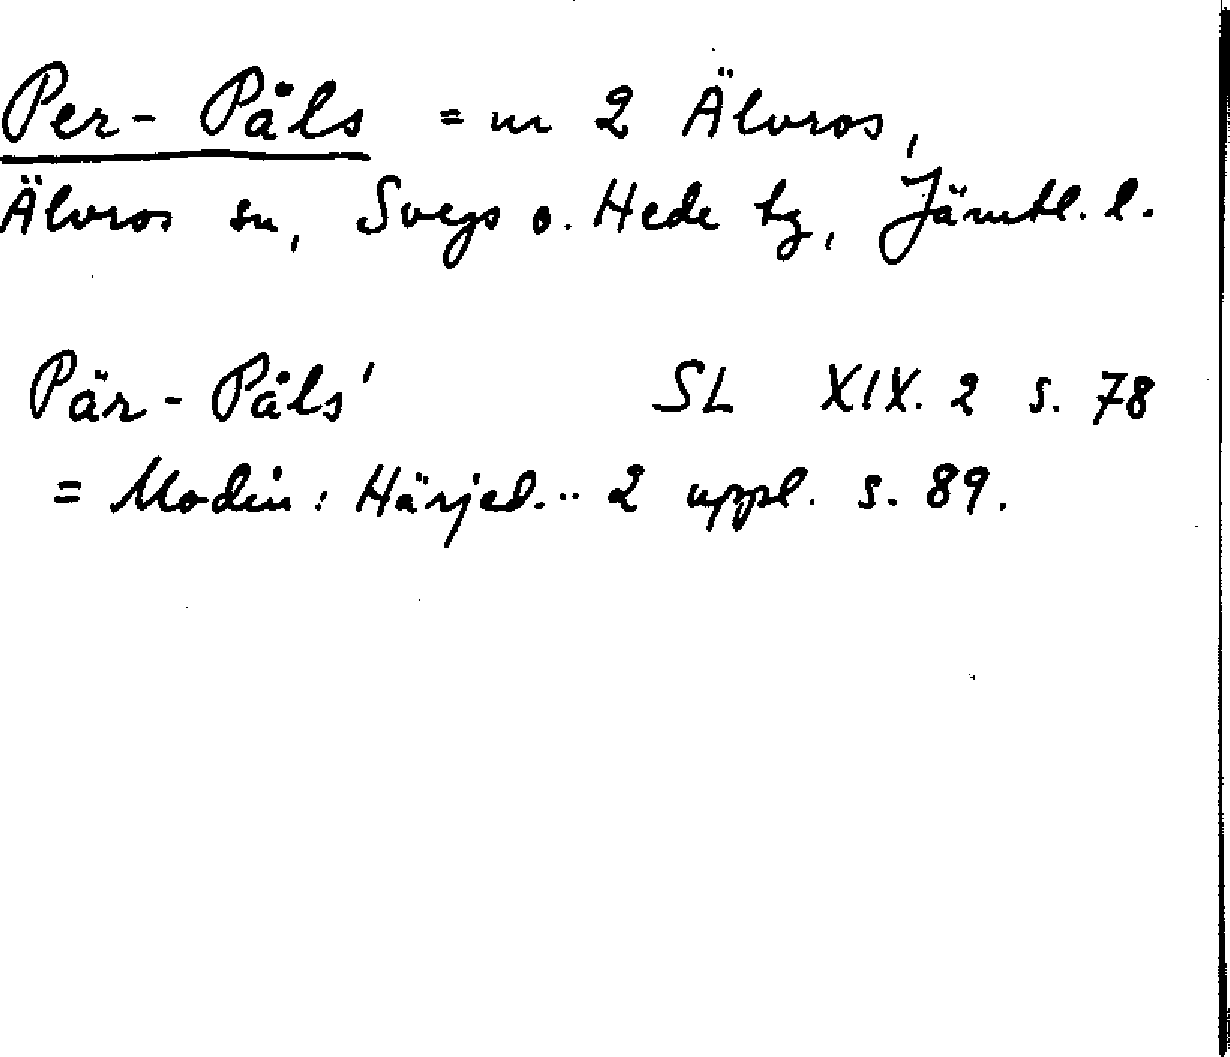 Per-Påls = nr 2 Älvros,
Älvros sn, Svegs o. Hede tg, Jämtl. l.
Pär-Påls' SL XIX. 2 s. 78
= Modin: Härjed... 2 uppl. s. 89.